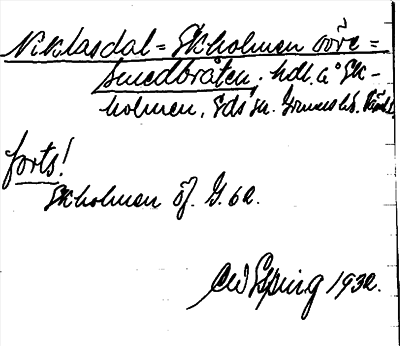 Niklasdal = Ekholmen övre =
Smedbråten, hdl. å Ek-
holmen, Eds sn. Grums hd. Värml.
forts!
Ekholmen öf. G. 62.
Spring 1932.